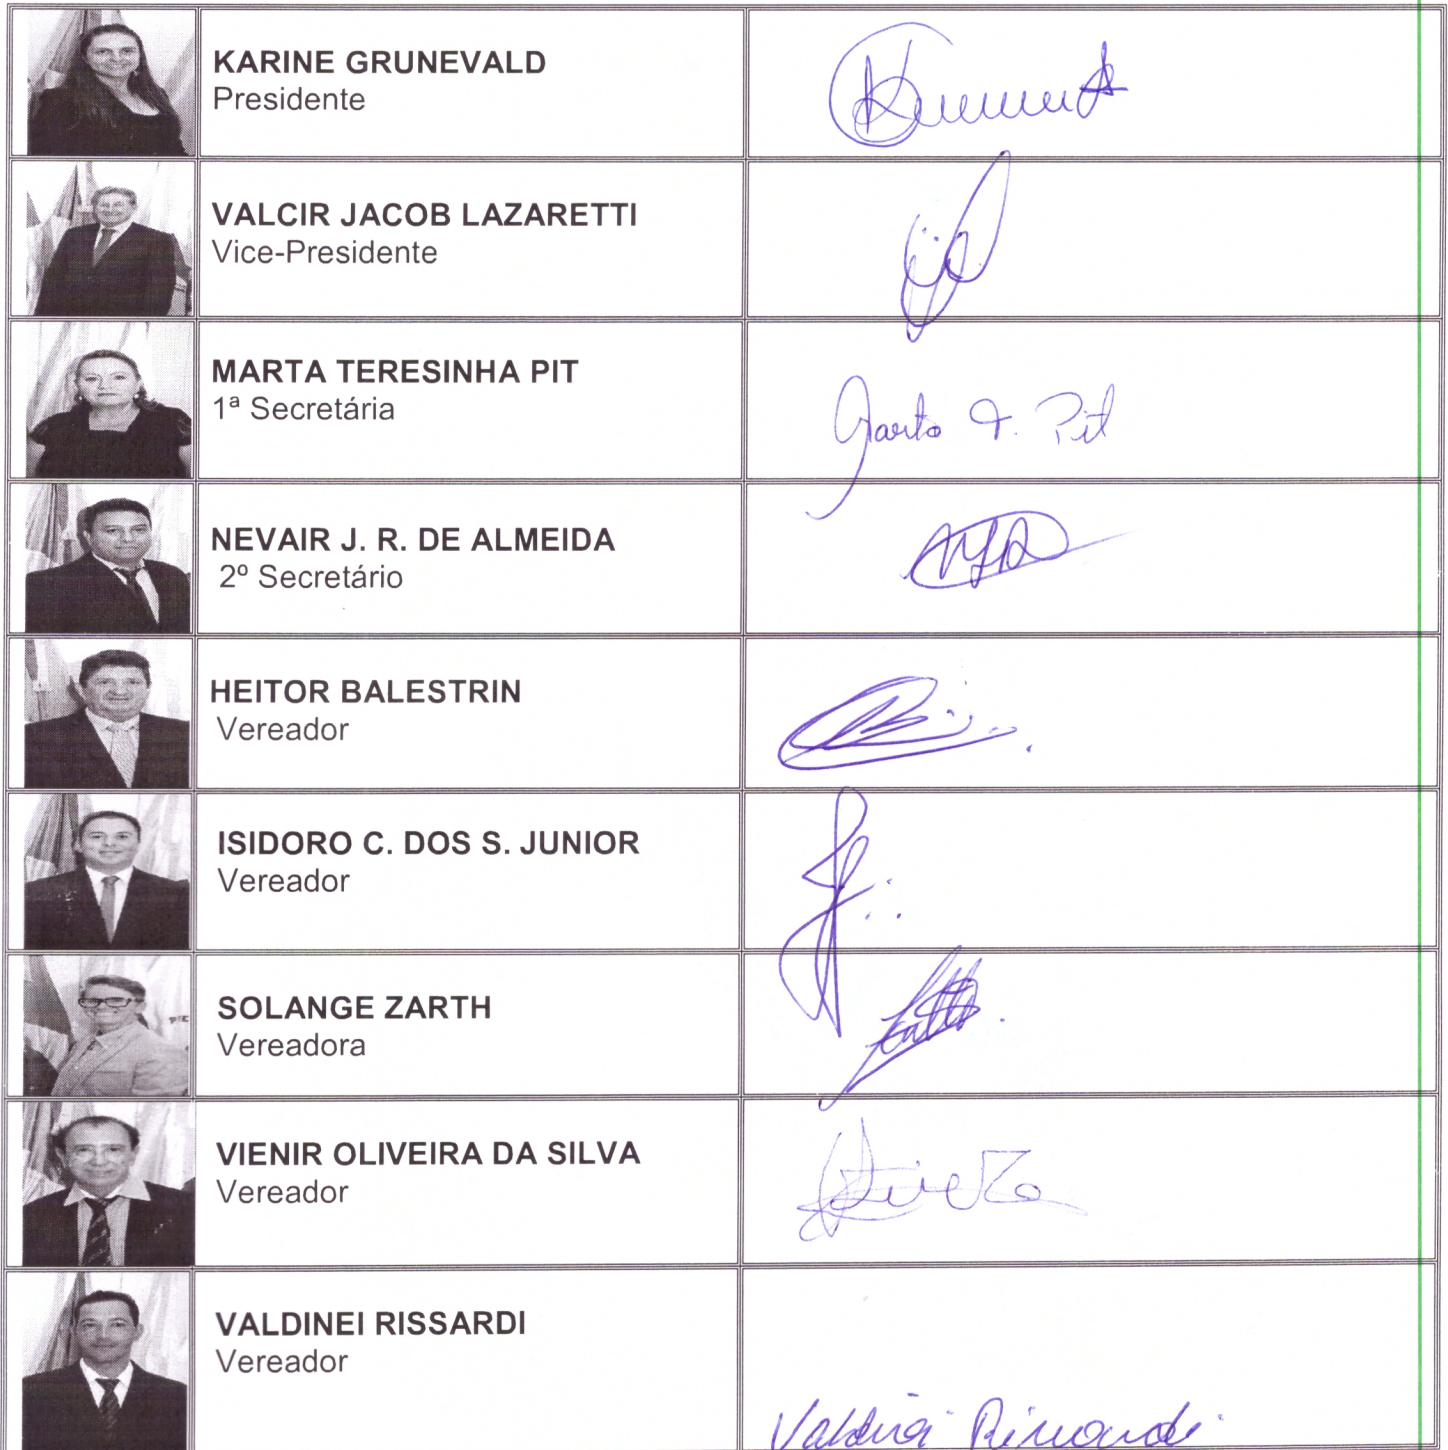 KARINE GRUNEVALD
Presidente
VALCIR JACOB LAZARETTI
Vice-Presidente
MARTA TERESINHA PIT
1ª Secretária
Marta T. Pit
NEVAIR J. R. DE ALMEIDA
2º Secretário
HEITOR BALESTRIN
Vereador
ISIDORO C. DOS S. JUNIOR
Vereador
SOLANGE ZARTH
Vereadora
VIENIR OLIVEIRA DA SILVA
Vereador
VALDINEI RISSARDI
Vereador
Valdinei Rissardi